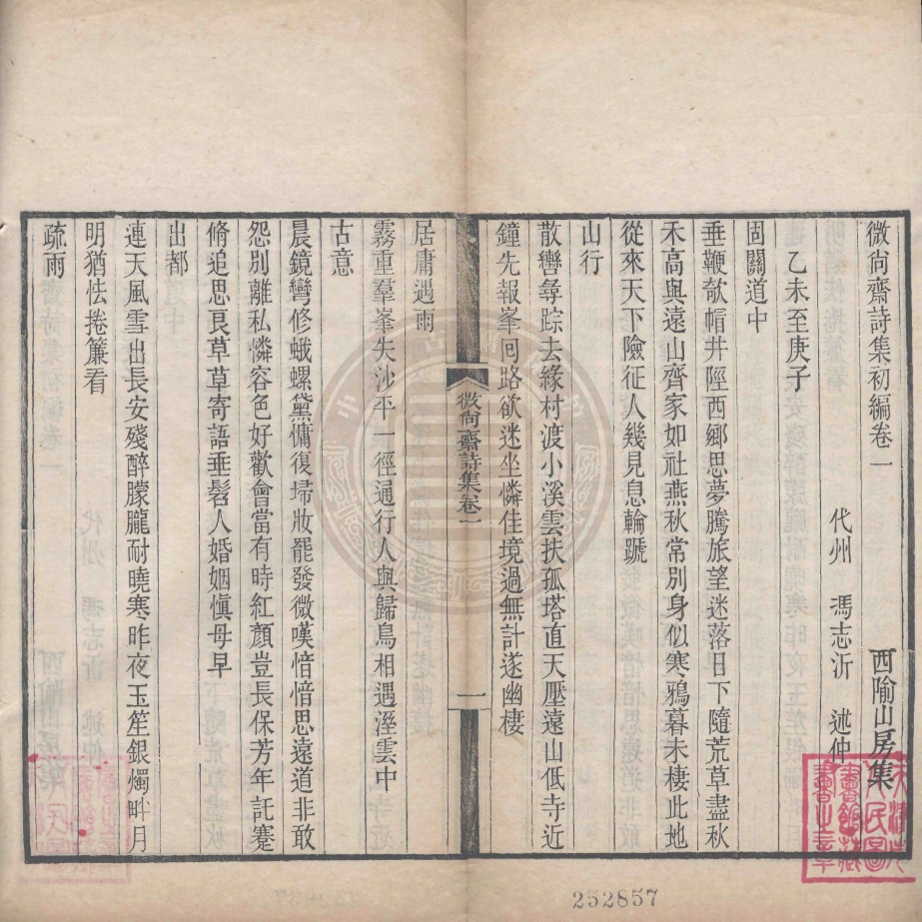 微尙齋詩集初編卷一
西隃山房集
代州 馮志沂 述仲
乙未至庚子
固關道中
垂鞭欹帽井陘西鄉思夢騰旅望迷落日下隨荒草盡秋
禾高與遠山齊家如社燕秋常別身似寒鴉暮未棲此地
從來天下險征人幾見息輪蹏
山行
散轡尋踪去緣村渡小溪雲扶孤塔直天壓遠山低寺近
鐘先報峯囘路欲迷坐憐佳境過無計遂幽棲
微尙齋詩集卷一
一
居庸遇雨
霧重羣峯失沙平一徑通行人與歸鳥相遇溼雲中
古意
晨鏡彎修蛾螺黛慵復埽妝罷發微嘆愔愔思遠道非敢
怨別離私憐容色好歡會當有時紅顏豈長保芳年託蹇
脩追思良草草寄語垂髫人婚姻愼毋早
出都
連天風雪出長安殘醉朦朧耐曉寒昨夜玉笙銀燭畔月
明猶怯捲簾看
疏雨
天津市人民圖書館藏書之章
252857